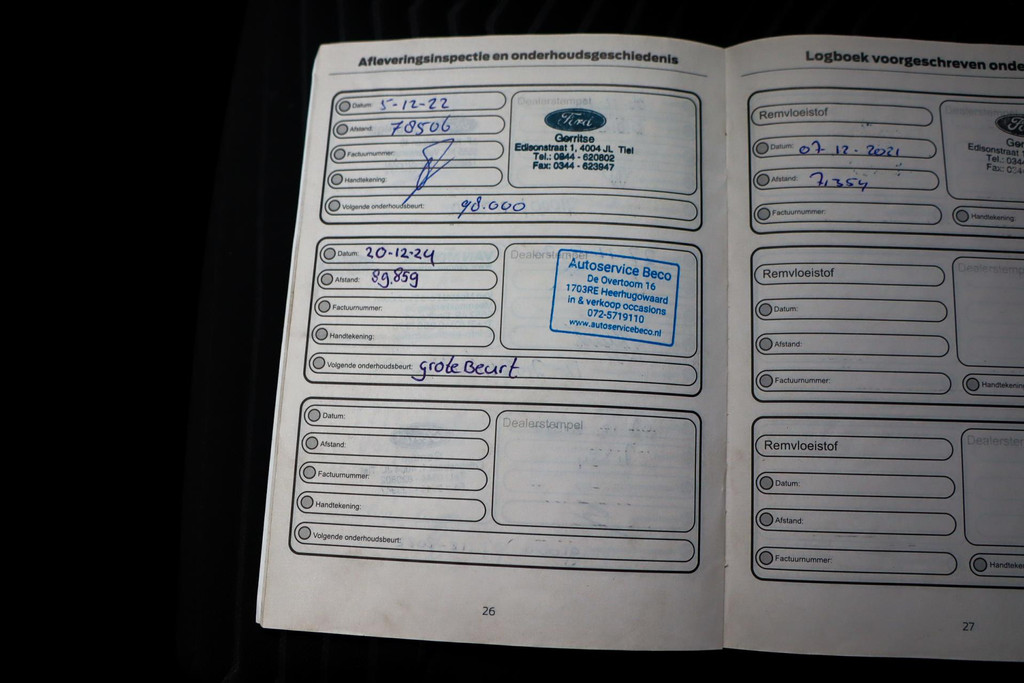 Afleveringsinspectie en onderhoudsgeschiedenis
Datum: 5-12-22
Afstand: 78506
Factuurnummer:
Handtekening:
Volgende onderhoudsbeurt: 98.000
Dealerstempel
Ford
Gerritse
Edisonstraat 1, 4004 JL Tiel
Tel.: 0344 - 620802
Fax: 0344 - 623947
Datum: 20-12-24
Afstand: 89.859
Factuurnummer:
Handtekening:
Volgende onderhoudsbeurt: grote Beurt
Dealerstempel
Autoservice Beco
De Overtoom 16
1703RE Heerhugowaard
in & verkoop occasions
072-5719110
www.autoservicebeco.nl
Datum:
Afstand:
Factuurnummer:
Handtekening:
Volgende onderhoudsbeurt:
Dealerstempel
26
Logboek voorgeschreven onde
Remvloeistof
Datum: 07-12-2021
Afstand: 71354
Factuurnummer:
Handtekening:
Edisonstraat
Tel.: 034
Remvloeistof
Datum:
Afstand:
Factuurnummer:
Dealerste
Handtekenin
Remvloeistof
Datum:
Afstand:
Factuurnummer:
Dealerste
Handteke
27